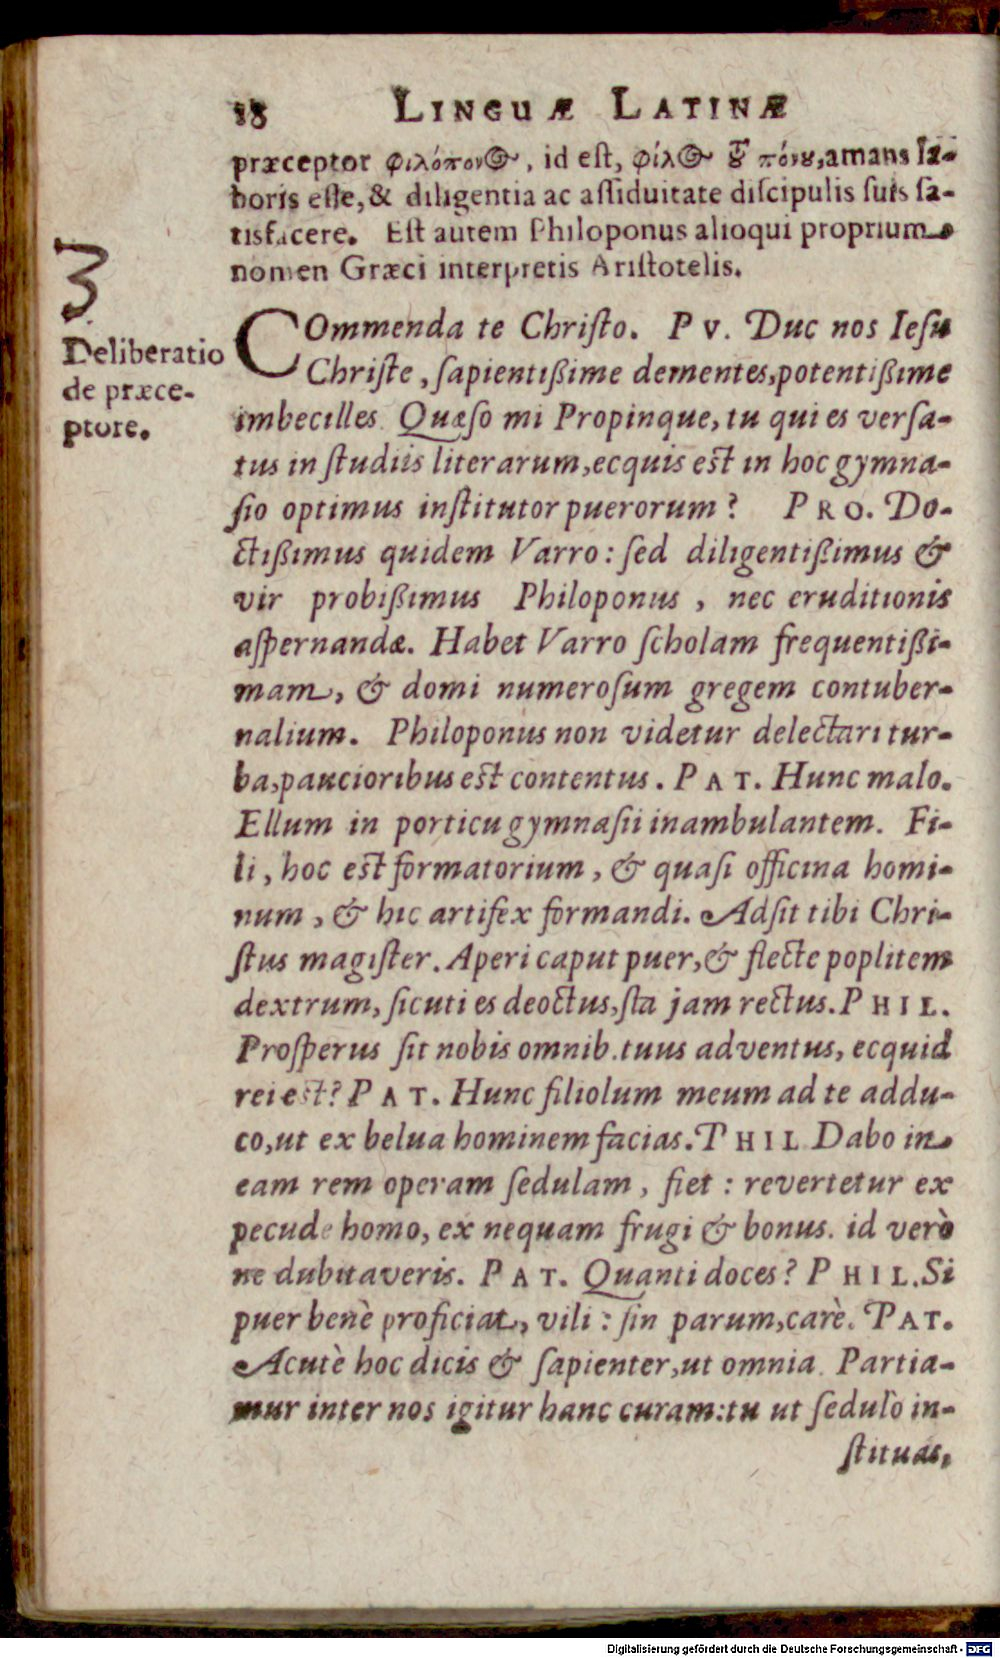 18 LINGUÆ LATINÆ
præceptor φιλόπονος, id eſt, φίλος τοῦ πόνου, amans la-
boris eſſe, & diligentia ac aſſiduitate diſcipulis ſuis ſa-
tisfacere. Eſt autem Philoponus alioqui proprium
nomen Græci interpretis Ariſtotelis.
3
Deliberatio
de præce-
ptore.
COmmenda te Chriſto. PV. Duc nos Ieſu
Chriſte, ſapientißime dementes, potentißime
imbecilles. Quæſo mi Propinque, tu qui es verſa-
tus in ſtudiis literarum, ecquis eſt in hoc gymna-
ſio optimus inſtitutor puerorum? PRO. Do-
ctißimus quidem Varro: ſed diligentißimus &
vir probißimus Philoponus, nec eruditionis
aſpernandæ. Habet Varro ſcholam frequentißi-
mam, & domi numeroſum gregem contuber-
nalium. Philoponus non videtur delectari tur-
ba, paucioribus eſt contentus. PAT. Hunc malo.
Ellum in porticu gymnaſii inambulantem. Fi-
li, hoc eſt formatorium, & quaſi officina homi-
num, & hic artifex formandi. Adſit tibi Chri-
ſtus magiſter. Aperi caput puer, & flecte poplitem
dextrum, ſicuti es deoctus, ſta jam rectus. PHIL.
Proſperus ſit nobis omnib. tuus adventus, ecquid
rei eſt? PAT. Hunc filiolum meum ad te addu-
co, ut ex belua hominem facias. PHIL Dabo in
eam rem operam ſedulam, fiet: revertetur ex
pecude homo, ex nequam frugi & bonus. id verò
ne dubitaveris. PAT. Quanti doces? PHIL. Si
puer benè proficiat, vili: ſin parum, carè. PAT.
Acutè hoc dicis & ſapienter, ut omnia. Partia-
mur inter nos igitur hanc curam: tu ut ſedulò in-
ſtituas,
Digitalisierung gefördert durch die Deutsche Forschungsgemeinschaft - DFG